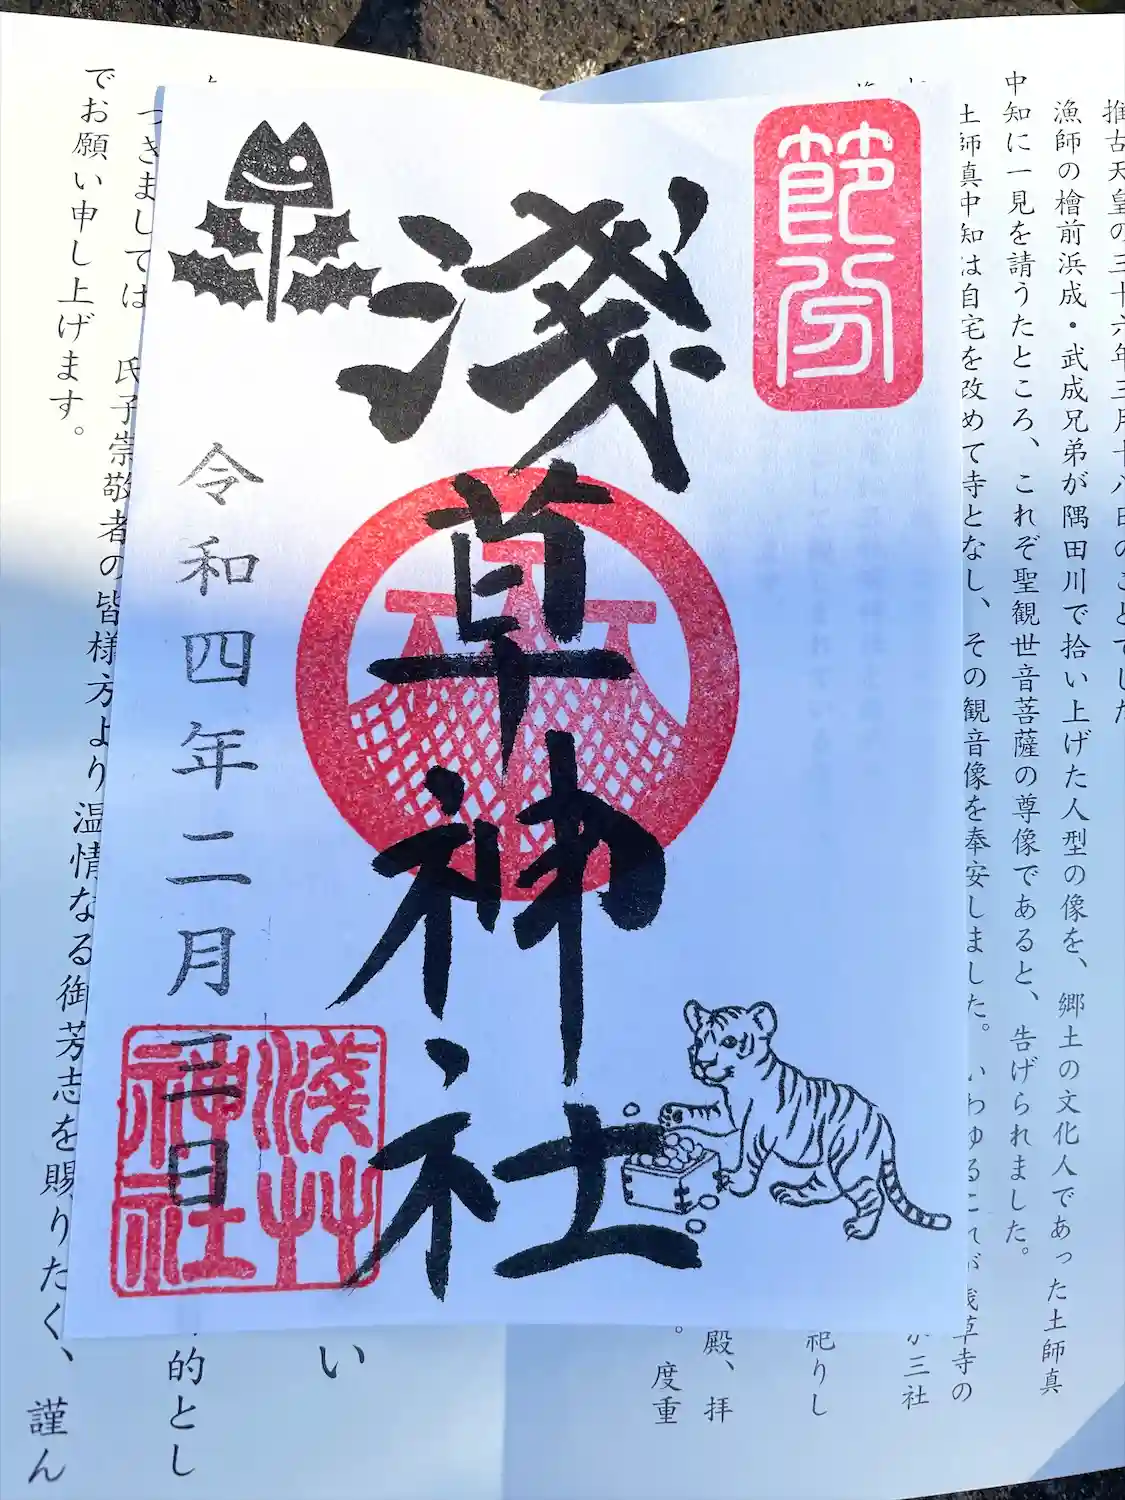 推古天皇の三十六年三月十八日のことでした
漁師の檜前浜成・武成兄弟が隅田川で拾い上げた人型の像を、郷土の文化人であった土師真
中知に一見を請うたところ、これぞ聖観世音菩薩の尊像であると、告げられました。
土師真中知は自宅を改めて寺となし、その観音像を奉安しました。いわゆるこれが浅草寺の
三社
祀りし
殿、拝
。度重
節分
浅草神社
令和四年二月三日
淺艸神社
い
的とし
つきましては、氏子崇敬者の皆様方より温情なる御芳志を賜りたく、謹ん
でお願い申し上げます。